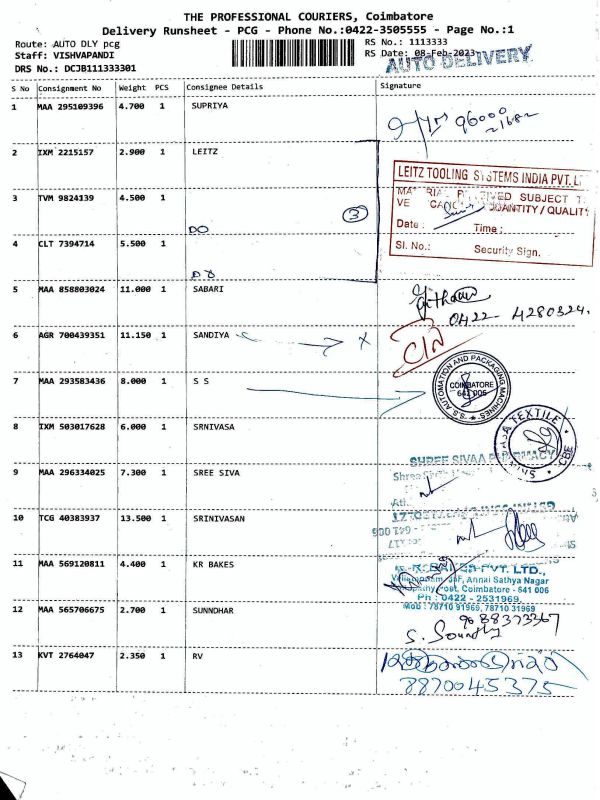 THE PROFESSIONAL COURIERS, Coimbatore
Delivery Runsheet - PCG - Phone No.:0422-3505555 - Page No.:1
Route: AUTO DLY pcg
RS No.: 1113333
Staff: VISHVAPANDI
RS Date: 08-Feb-2023
DRS No.: DCJB111333301
AUTO DELIVERY
S No Consignment No Weight PCS Consignee Details Signature
1 MAA 295109396 4.700 1 SUPRIYA
96000
21682
2 IXM 2215157 2.900 1 LEITZ
LEITZ TOOLING SYSTEMS INDIA PVT. L
SUBJECT T
QUANTITY / QUALITY
Date: Time:
Sl. No.: Security Sign.
3 TVM 9824139 4.500 1
3
DO
4 CLT 7394714 5.500 1
DO
5 MAA 858803024 11.000 1 SABARI
0422 4280324.
6 AGR 700439351 11.150 1 SANDIYA
X
7 MAA 293583436 8.000 1 S S
S.S AUTOMATION AND PACKAGING MACHINES
COIMBATORE
641 006
8 IXM 503017628 6.000 1 SRNIVASA
TEXTILE
CBE
9 MAA 296334025 7.300 1 SREE SIVA
SHREE SIVAA PHARMACY
10 TCG 40383937 13.500 1 SRINIVASAN
11 MAA 569120811 4.400 1 KR BAKES
PVT. LTD.,
Annai Sathya Nagar
Post, Coimbatore - 641 006
Ph : 0422 - 2531969,
Mob : 78710 91969, 78710 31969
12 MAA 565706675 2.700 1 SUNNDHAR
88373367
S.
13 KVT 2764047 2.350 1 RV
8870045375